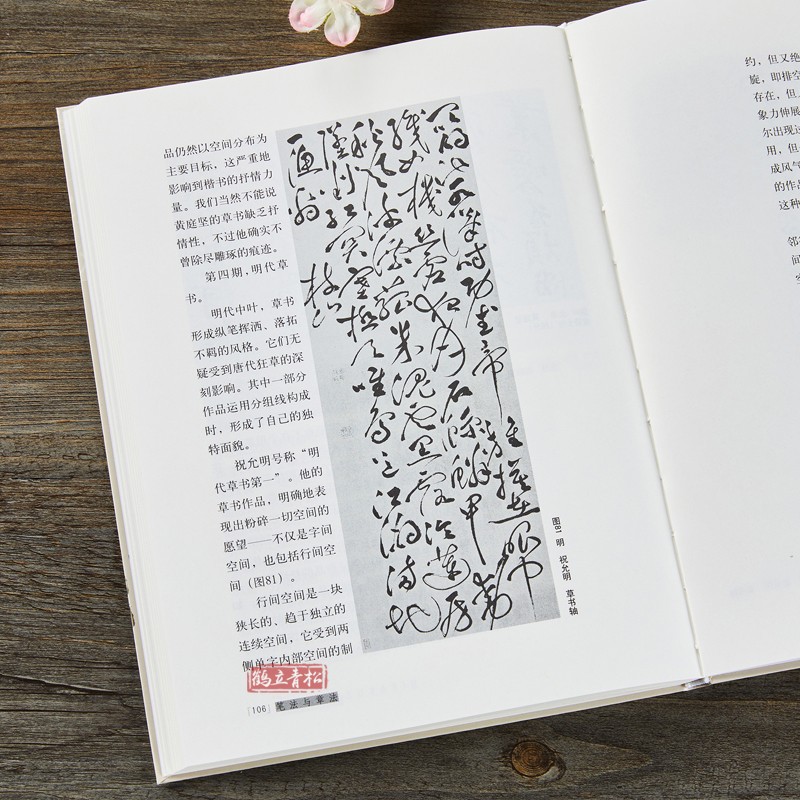 品仍然以空间分布为
主要目标，这严重地
影响到楷书的抒情力
量。我们当然不能说
黄庭坚的草书缺乏抒
情性，不过他确实不
曾除尽雕琢的痕迹。
第四期，明代草
书。
明代中叶，草书
形成纵笔挥洒、落拓
不羁的风格。它们无
疑受到唐代狂草的深
刻影响。其中一部分
作品运用分组线构成
时，形成了自己的独
特面貌。
祝允明号称“明
代草书第一”。他的
草书作品，明确地表
现出粉碎一切空间的
愿望——不仅是字间
空间，也包括行间空
间（图81）。
行间空间是一块
狭长的、趋于独立的
连续空间，它受到两
侧单字内部空间的制
鹤立青松
[106] 笔法与章法
织女机丝虚夜月石鲸鳞甲动
秋风波漂菰米沉云黑露冷莲房
坠粉红关塞极天唯鸟道江湖满地
一渔翁 枝山
图81 明 祝允明 草书轴
约，但又绝
旋，即排空
存在，但
象力伸展
尔出现这
用，但
成风气
的作品
这种
邻
间